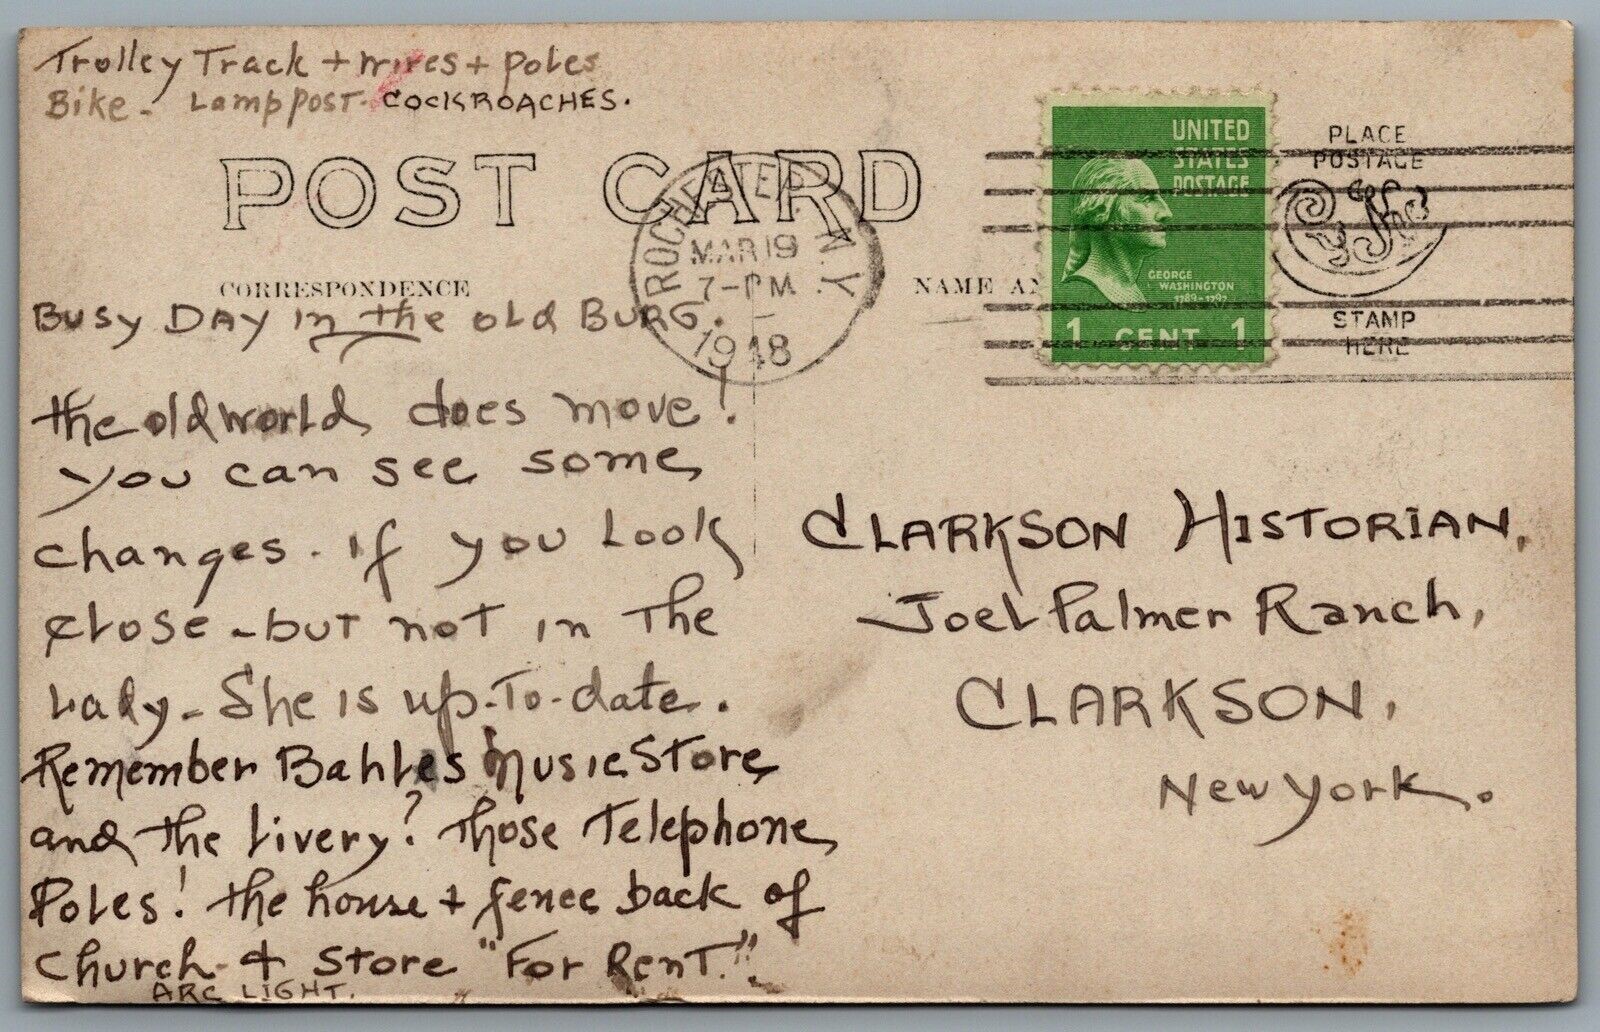 Trolley Track + wires + poles
Bike - Lamp post - COCKROACHES.
POST CARD
ROCHESTER, N.Y.
MAR 19
7-PM
1948
UNITED
STATES
POSTAGE
GEORGE
WASHINGTON
1789-1797
1 CENT 1
PLACE
POSTAGE
STAMP
HERE
CORRESPONDENCE
NAME AN
BUSY DAY in the old BURG.
the old world does move!
you can see some
changes. if you Look
close - but not in The
Lady - She is up-To-date.
Remember Bahles Music Store
and the Livery? Those Telephone
Poles! the house + fence back of
Church + Store "For Rent."
ARC LIGHT.
CLARKSON HISTORIAN,
Joel Palmer Ranch,
CLARKSON,
New York.